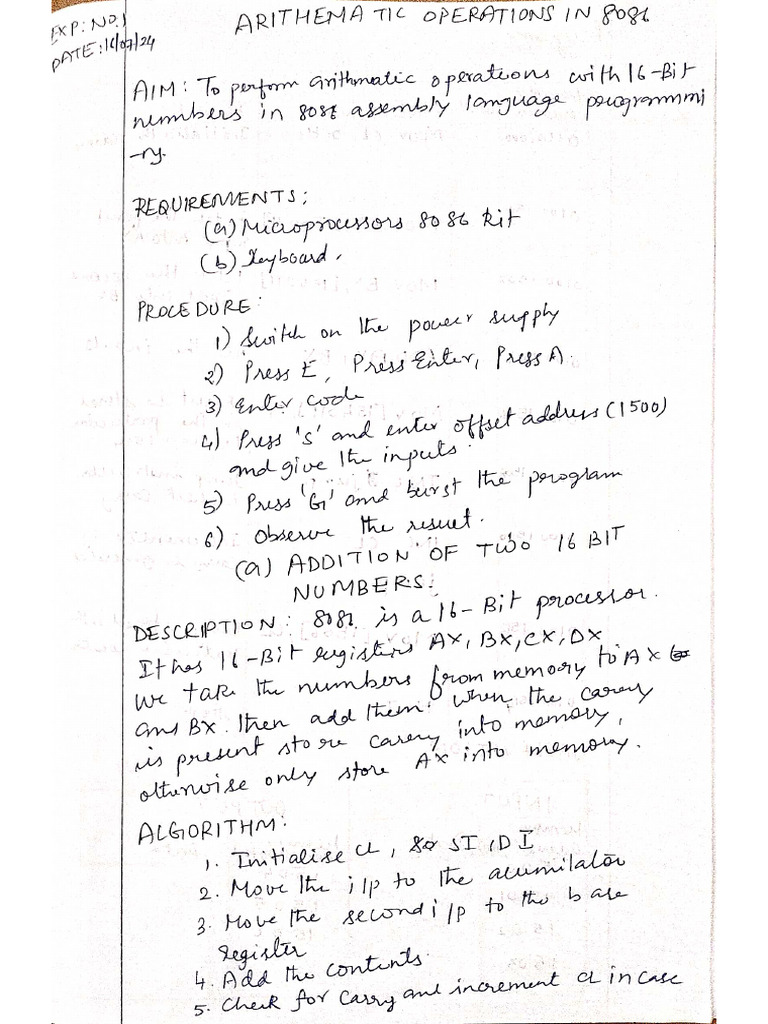 EXP: NO.1
DATE: 16/07/24
ARITHEMATIC OPERATIONS IN 8086
AIM: To perform arithmatic operations with 16-Bit
numbers in 8086 assembly language programmi
-ng.
REQUIREMENTS:
(a) Microprocessors 8086 kit
(b) Keyboard.
PROCEDURE:
1) Switch on the power supply
2) Press E, Press Enter, Press A.
3) Enter code
4) Press 'S' and enter offset address (1500)
and give the inputs.
5) Press 'G' and burst the program
6) Observe the result.
(a) ADDITION OF TWO 16 BIT
NUMBERS:
DESCRIPTION: 8086 is a 16-Bit processor.
It has 16-Bit registers AX, BX, CX, DX
We take the numbers from memory to AX
ans BX. then add them. when the carry
is present store carry into memory,
otherwise only store AX into memory.
ALGORITHM:
1. Initialise CL, SI, DI
2. Move the i/p to the accumilator
3. Move the second i/p to the base
register
4. Add the contents.
5. Check for carry and increment CL in case